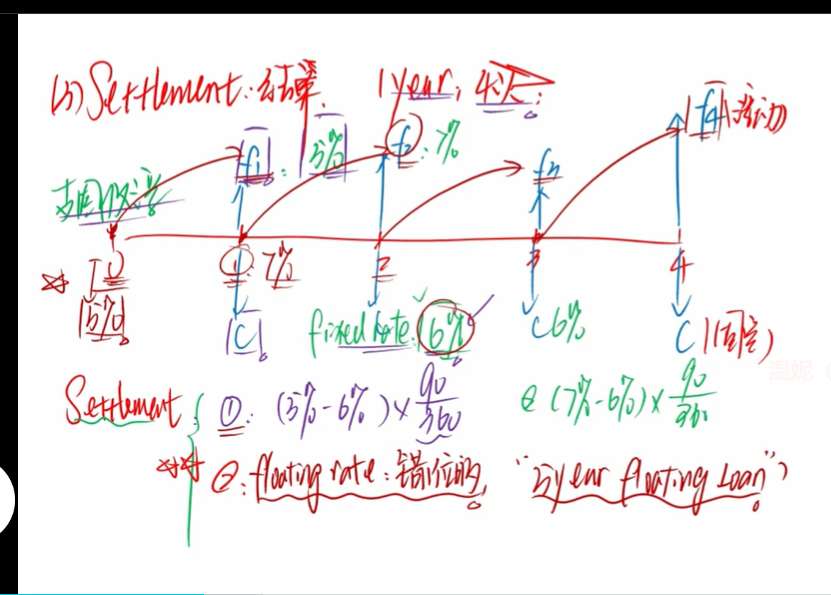 (5) Settlement: 结算. 1 year, 4次:
f1: 5% f2: 7% f3 f4 (浮动)
0 1 7% 2 3 4
5% C fixed rate: 6% C 6% C (固定)
Settlement ①: (5%-6%) × 90/360 ② (7%-6%) × 90/360
②: floating rate: 错位的, "5 year floating Loan"